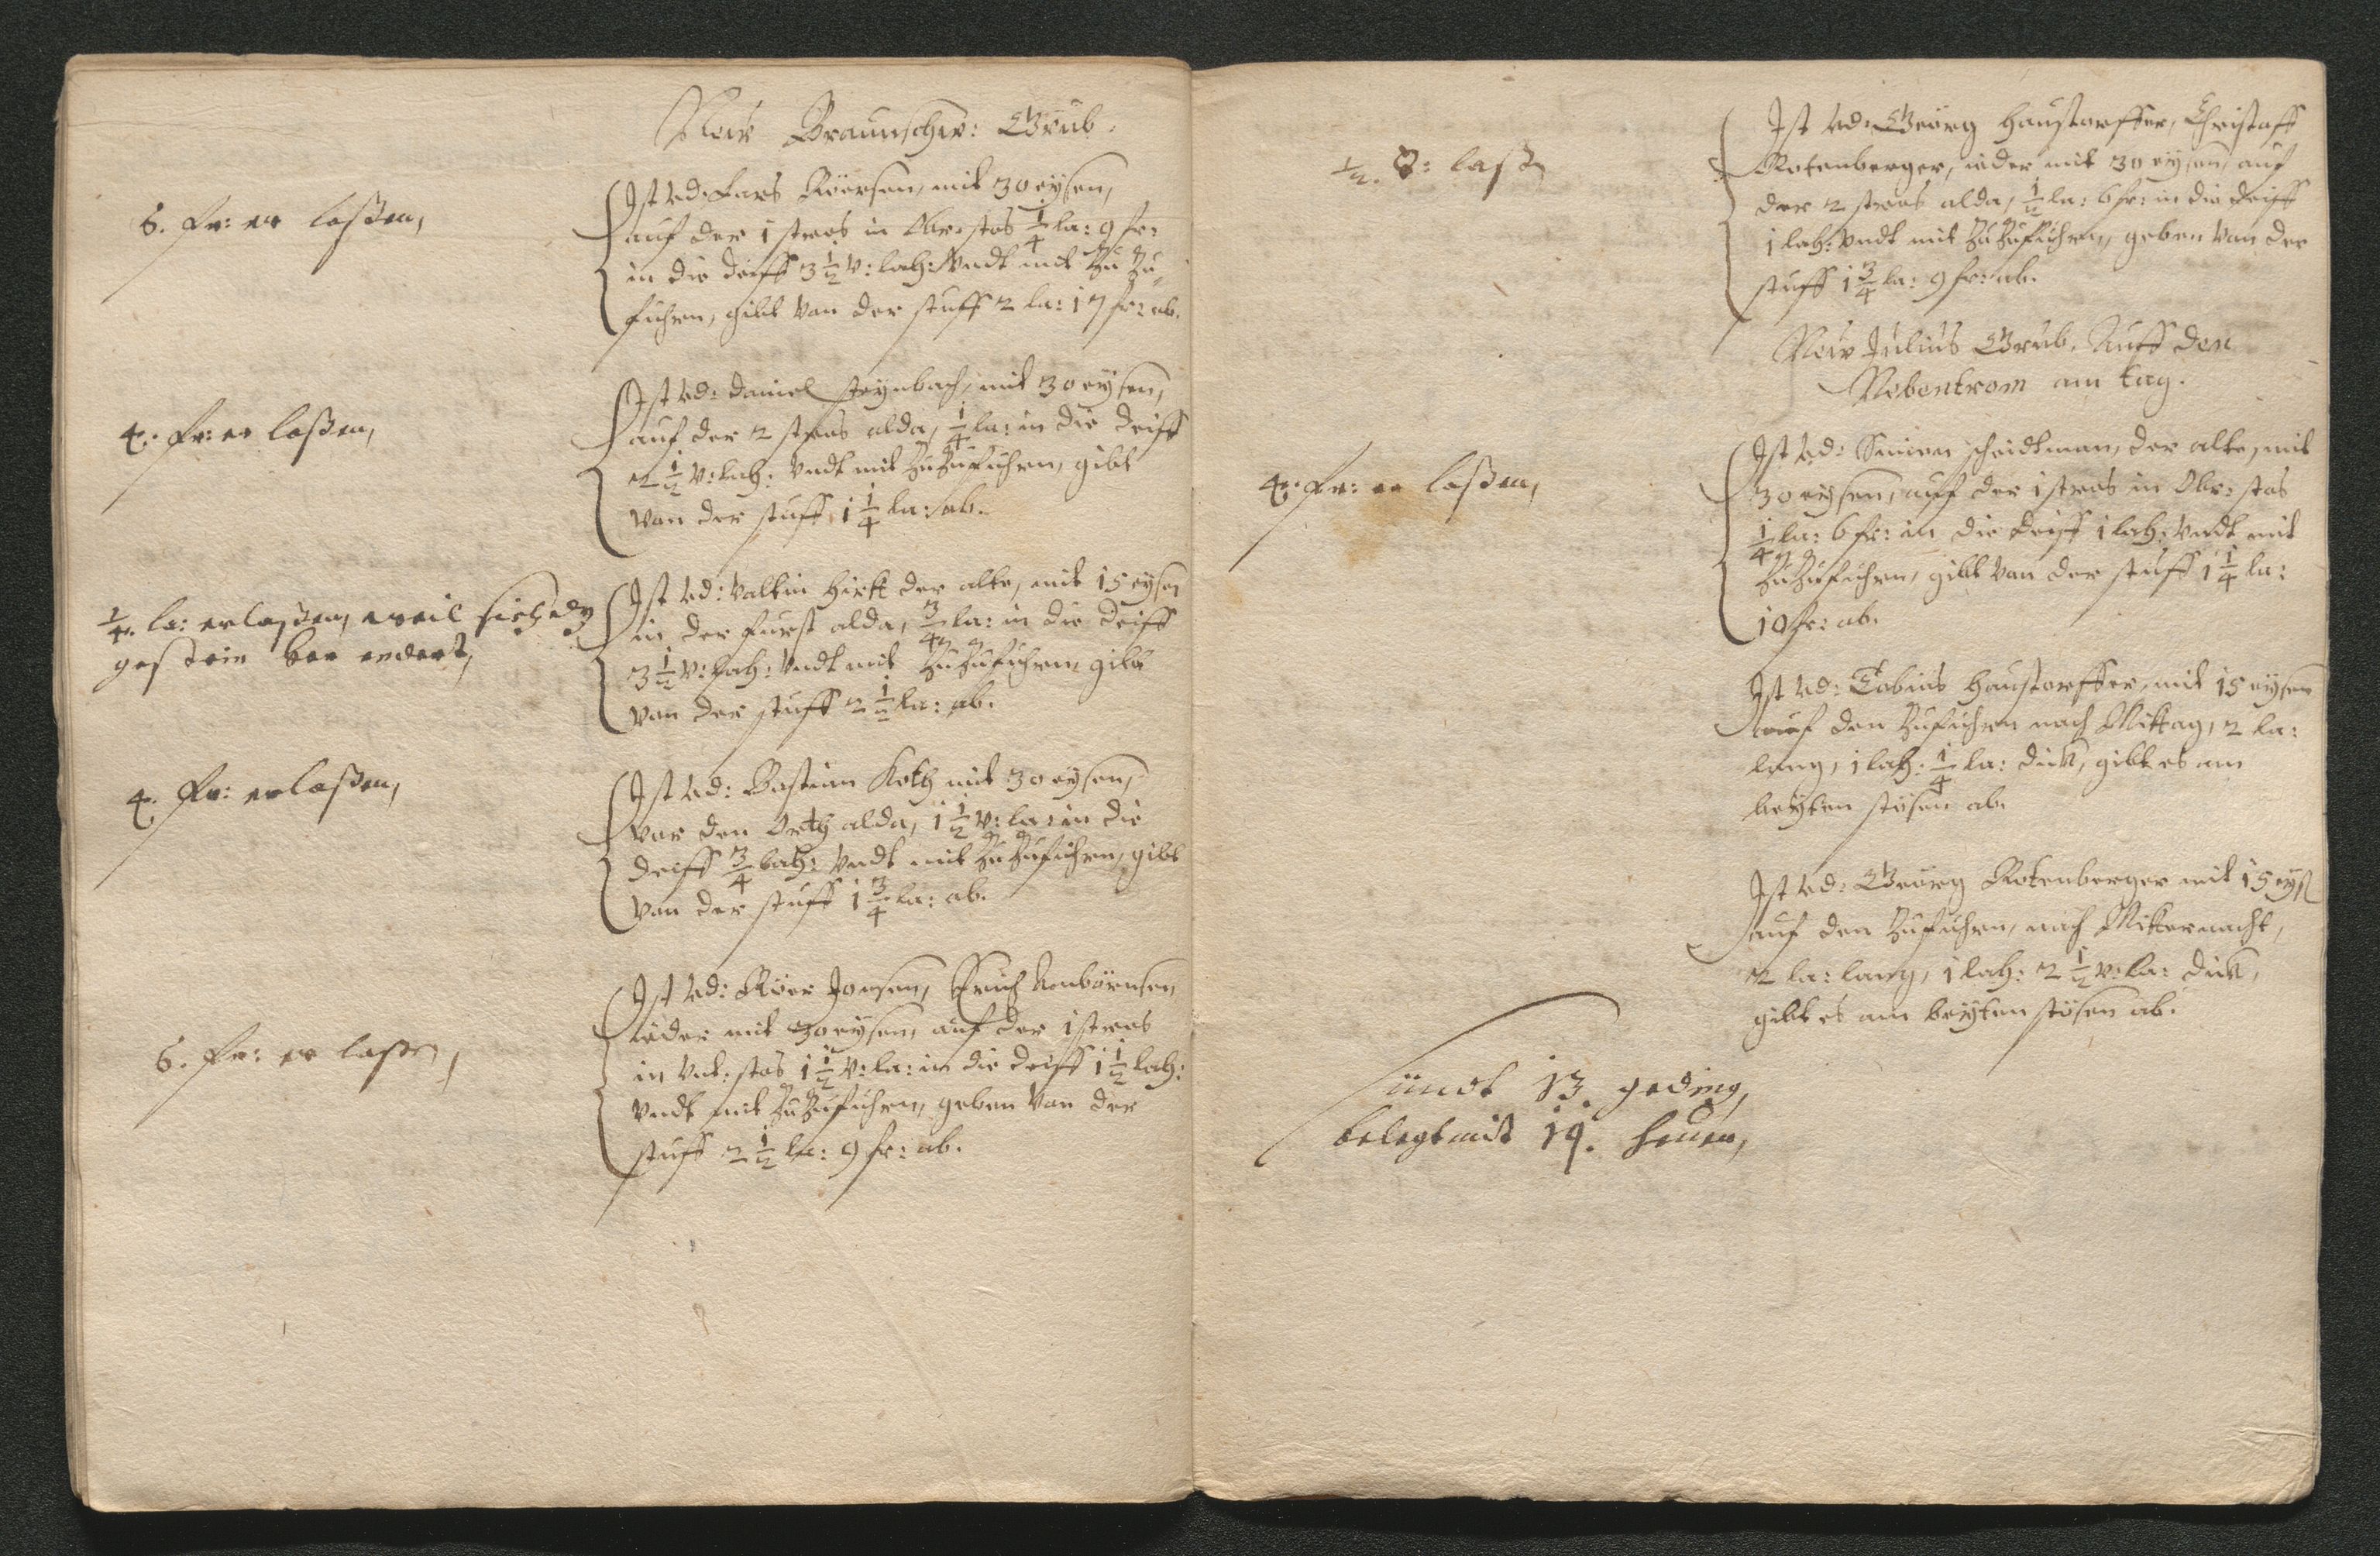 New Braunschw: Grub.
6. fr: er laßen,
Ist vd: Lars Röersen, mit 30 eysen,
auf der 1 stros in Obr: stos 1/4 la: 9 fr:
in die deiff 3 1/2 v: lach: vndt mit Zu Zu
fuhren, gibt von der stuff 2 la: 17 fr: ab.
4. fr: er laßen,
Ist vd: Daniel steynbach, mit 30 eysen,
auf der 2 stros alda, 1/4 la: in die deiff
2 1/2 v: lach: vndt mit Zu Zufuhren, gibt
von der stuff 1 1/4 la: ab.
1/4. la: erlaßen, weil sich dz
gestein ver endert,
Ist vd: Valtin Hirtt der alte, mit 15 eysen
in der furst alda, 3/4 la: in die deiff
3 1/2 v: lach: vndt mit Zu Zufuhren gibt
von der stuff 2 1/2 la: ab.
4. fr: erlaßen,
Ist vd: Bastian Koth mit 30 eysen,
vor den Orth alda, 1 1/2 v: la: in die
deiff 3/4 lach: vndt mit Zu Zufuhren, gibt
von der stuff 1 3/4 la: ab.
6. fr: er laßen,
Ist vd: Röer Jonsen, Erich Anbörnsen
ieder mit 30 eysen, auf der 1 stros
in vnt: stos 1 1/2 v: la: in die deiff 1 1/2 lach:
vndt mit Zu Zufuhren, geben von der
stuff 2 1/2 la: 9 fr: ab.
Ist vd: Georg Haustorffer, Christoff
Rotenberger, ieder mit 30 eysen, auf
der 2 stros alda, 1/2 la: 6 fr: in die deiff
1 lach: vndt mit Zu Zufuhren, geben von der
stuff 1 3/4 la: 9 fr: ab.
New Julius Grub, Auff den
Nebentrom am tag.
4. fr: er laßen,
Ist vd: Simon scheidtman, der alte, mit
30 eysen, auf der 1 stros in Obr: stos
1/4 la: 6 fr: in die deiff 1 lach: vndt mit
Zu Zufuhren, gibt von der stuff 1 1/4 la:
10 fr: ab.
Ist vd: Tobias Haustorffer, mit 15 eysen
auf den Zufuhren nach Mittag, 2 la:
lang, 1 lach: 1/4 la: dick, gibt es am
beyten stösen ab.
Ist vd: Georg Rotenberger mit 15 eyß
auf den Zufuhren, nach Mitternacht,
2 la: lang, 1 lach: 2 1/2 v: la: dick,
gibt es am beyten stösen ab.
sündt 13. geding,
belegt mit 19. heuer,